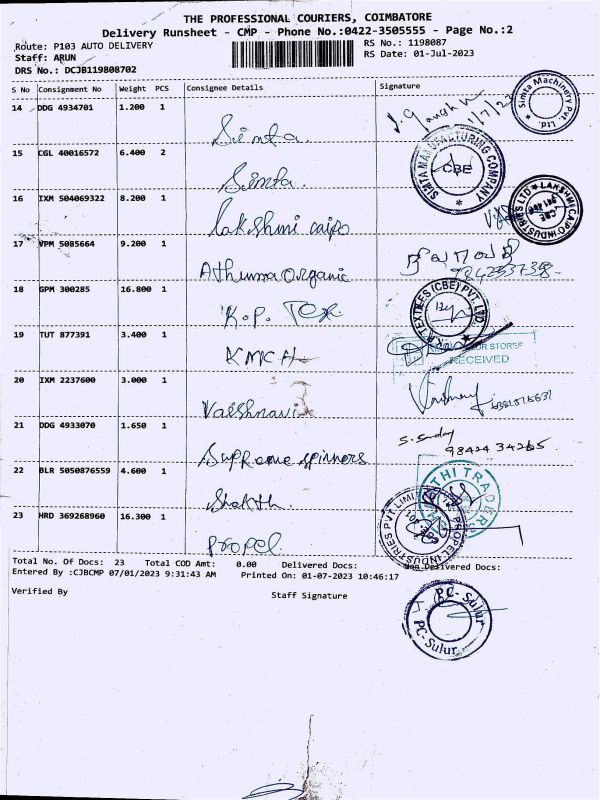 THE PROFESSIONAL COURIERS, COIMBATORE
Delivery Runsheet - CMP - Phone No.:0422-3505555 - Page No.:2
Route: P103 AUTO DELIVERY
RS No.: 1198087
Staff: ARUN
RS Date: 01-Jul-2023
DRS No.: DCJB119808702
S No Consignment No Weight PCS Consignee Details Signature
14 DDG 4934701 1.200 1 Simta.
Simta Machinery Pvt Ltd.
15 CGL 40016572 6.400 2 Simta.
SIMTA MANUFACTURING COMPANY CBE
16 IXM 504069322 8.200 1 Lakshmi caipo
LAKSHMI CAIPO INDUSTRIES LTD CBE
17 VPM 5085664 9.200 1 Athuma Organic
18 GPM 300285 16.800 1 K.P. Tex
TEXTILES (CBE) PVT. LTD.
19 TUT 877391 3.400 1 KMCH
STORES
RECEIVED
20 IXM 2237600 3.000 1 Vaishnavi
21 DDG 4933070 1.650 1 Supreme spinners
22 BLR 5050876559 4.600 1 Shakthi.
THI TRADERS
23 HRD 369268960 16.300 1 Propel
PROPEL INDUSTRIES PVT LIMITED
Total No. Of Docs: 23 Total COD Amt: 0.00 Delivered Docs: Non Delivered Docs:
Entered By :CJBCMP 07/01/2023 9:31:43 AM Printed On: 01-07-2023 10:46:17
Verified By Staff Signature
PC-Sulur
PC-Sulur